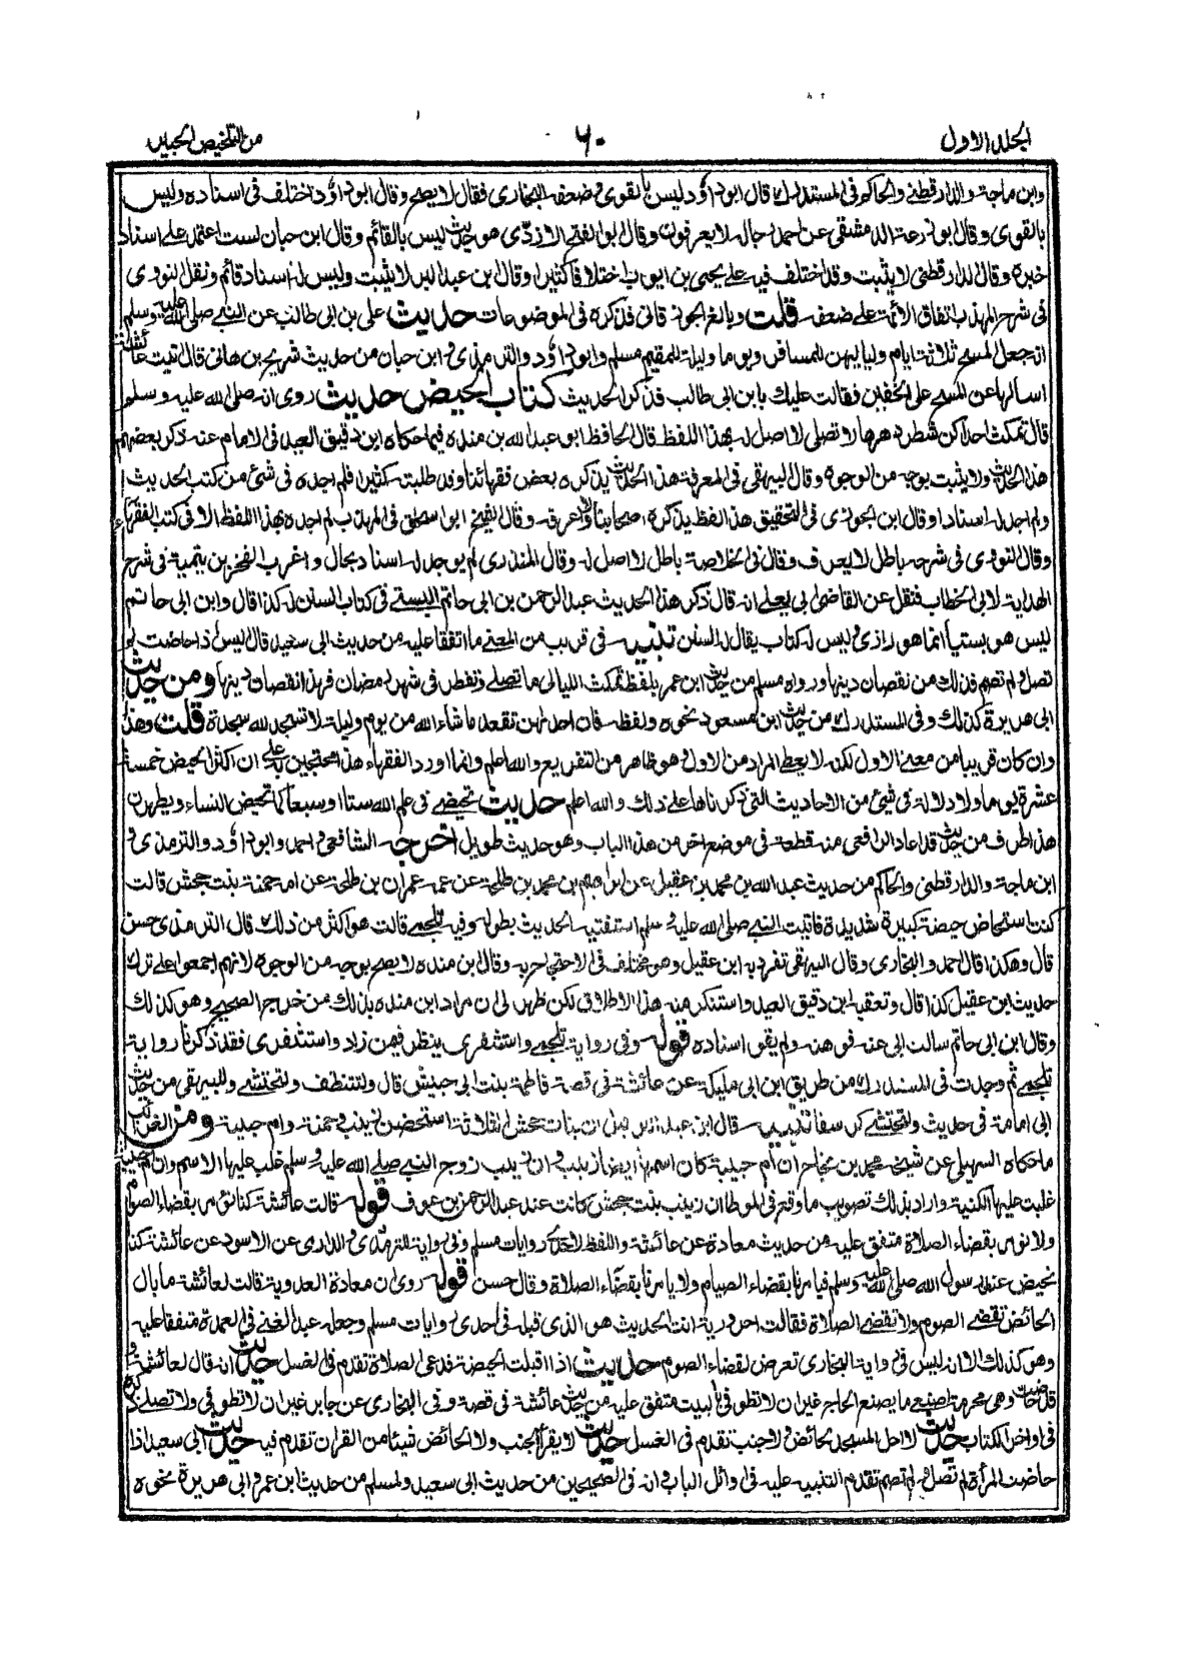 الجلد الاول
٦٠
من التلخيص الحبير
وابن ماجة والدارقطنى والحاكم فى المستدرك قال ابوداؤد ليس بالقوى وضعفه البخارى فقال لا يصح وقال ابوداؤد اختلف فى اسناده وليس
بالقوى وقال ابوزرعة الدمشقى عن احمد رجاله لا يعرفون وقال ابوالفتح الازدى هو حديث ليس بالقائم وقال ابن حبان لست اعتمد على اسناد
خبره وقال الدارقطنى لا يثبت وقد اختلف فيه على يحيى بن ايوب اختلافا كثيرا وقال ابن عبد البر لا يثبت وليس له اسناد قائم ونقل النووى
فى شرح المهذب اتفاق الائمة على ضعفه قلت وبالغ الجوزقانى فذكره فى الموضوعات حديث على بن ابى طالب عن النبى صلى الله عليه وسلم
انه جعل المسح ثلاثة ايام ولياليهن للمسافر ويوما وليلة للمقيم مسلم وابوداؤد والترمذى وابن حبان من حديث شريح بن هانى قال اتيت عائشة
اسالها عن المسح على الخفين فقالت عليك بابن ابى طالب فذكر الحديث كتاب الحيض حديث روى انه صلى الله عليه وسلم
قال تمكث احداكن شطر دهرها لا تصلى لا اصل له بهذا اللفظ قال الحافظ ابو عبد الله بن منده فيما حكاه ابن دقيق العيد فى الامام عنه ذكر بعضهم
هذا الحديث ولا يثبت بوجه من الوجوه وقال البيهقى فى المعرفة هذا الحديث يذكره بعض فقهائنا وقد طلبته كثيرا فلم اجده فى شئ من كتب الحديث
ولم اجد له اسنادا وقال ابن الجوزى فى التحقيق هذا لفظ يذكره اصحابنا ولا اعرفه وقال الشيخ ابو اسحاق فى المهذب لم اجده بهذا اللفظ الا فى كتب الفقهاء
وقال النووى فى شرحه باطل لا يعرف وقال فى الخلاصة باطل لا اصل له وقال المنذرى لم يوجد له اسناد بحال واغرب الفخر بن تيمية فى شرح
الهداية لابى الخطاب فنقل عن القاضى ابى يعلى انه قال ذكر هذا الحديث عبد الرحمن بن ابى حاتم البستى فى كتاب السنن له كذا قال وابن ابى حاتم
ليس هو بستيا انما هو رازى وليس له كتاب يقال له السنن تنبيه فى قريب من المعنى ما اتفقا عليه من حديث ابى سعيد قال اليس اذا حاضت لم
تصل ولم تصم فذلك من نقصان دينها ورواه مسلم من حديث ابن عمر بلفظ تمكث الليالى ما تصلى وتفطر فى شهر رمضان فهذا نقصان دينها ومن حديث
ابى هريرة كذلك وفى المستدرك من حديث ابن مسعود نحوه ولفظه فان احداهن تقعد ما شاء الله من يوم وليلة لا تسجد لله سجدة قلت وهذا
وان كان قريبا من معنى الاول لكنه لا يعطى المراد من الاول وهو ظاهر من التفريع والله اعلم وانما اورد الفقهاء هذا محتجين به على ان اكثر الحيض خمسة
عشرة يوما ولا دلالة فى شئ من الاحاديث التى ذكرناها على ذلك والله اعلم حديث تحيضى فى علم الله ستا او سبعا كما تحيض النساء ويطهرن
هذا طرف من حديث قد اعاد الرافعى منه قطعة فى موضع اخر من هذا الباب وهو حديث طويل اخرجه الشافعى واحمد وابوداؤد والترمذى و
ابن ماجة والدارقطنى والحاكم من حديث عبد الله بن محمد بن عقيل عن ابراهيم بن محمد بن طلحة عن عمه عمران بن طلحة عن امه حمنة بنت جحش قالت
كنت استحاض حيضة كبيرة شديدة فاتيت النبى صلى الله عليه وسلم استفتيه الحديث بطوله وفيه تلجمى قالت هو اكثر من ذلك قال الترمذى حسن
قال وهكذا قال احمد والبخارى وقال البيهقى تفرد به ابن عقيل وهو مختلف فى الاحتجاج به وقال ابن منده لا يصح بوجه من الوجوه لانهم اجمعوا على ترك
حديث ابن عقيل كذا قال وتعقبه ابن دقيق العيد واستنكر منه هذا الاطلاق لكن ظهر لى ان مراد ابن منده بذلك من خرج الصحيح وهو كذلك
وقال ابن ابى حاتم سالت ابى عنه فوهنه ولم يقو اسناده قوله وفى رواية تلجمى واستثفرى ينظر فيمن زاد واستثفرى فقد ذكرنا رواية
تلجمى ثم وجدت فى المستدرك من طريق ابن ابى مليكة عن عائشة فى قصة فاطمة بنت ابى حبيش قال ولتتنظف ولتحتشى وللبيهقى من حديث
ابى امامة فى حديث ولتحتشى كرسفا تنبيه قال ابن عبد البر قيل ان بنات جحش الثلاثة استحضن زينب وحمنة وام حبيبة ومن الغرائب
ما حكاه السهيلى عن شيخه محمد بن نجاح ان ام حبيبة كان اسمها ايضا زينب وان زينب زوج النبى صلى الله عليه وسلم غلب عليها الاسم وان ام حبيبة
غلبت عليها الكنية واراد بذلك تصويب ما وقع فى الموطا ان زينب بنت جحش كانت عند عبد الرحمن بن عوف قوله قالت عائشة كنا نؤمر بقضاء الصوم
ولا نؤمر بقضاء الصلاة متفق عليه من حديث معاذة عن عائشة واللفظ لاحدى روايات مسلم وفى رواية للترمذى والدارمى عن الاسود عن عائشة كنا
نحيض عند رسول الله صلى الله عليه وسلم فيامرنا بقضاء الصيام ولا يامرنا بقضاء الصلاة وقال حسن قوله روى ان معاذة العدوية قالت لعائشة ما بال
الحائض تقضى الصوم ولا تقضى الصلاة فقالت احرورية انت الحديث هو الذى قبله فى احدى روايات مسلم وجعله عبد الغنى فى العمدة متفقا عليه
وهو كذلك الا انه ليس فى رواية البخارى تعرض لقضاء الصوم حديث اذا اقبلت الحيضة فدعى الصلاة تقدم فى الغسل حديث انه قال لعائشة و
قد حاضت وهى محرمة اصنعى ما يصنع الحاج غير ان لا تطوفى بالبيت متفق عليه من حديث عائشة فى قصة وفى البخارى عن جابر غير ان لا تطوفى ولا تصلى ذكره
فى اواخر الكتاب حديث لا احل المسجد لحائض ولا جنب تقدم فى الغسل حديث لا يقرأ الجنب ولا الحائض شيئا من القران تقدم فيه حديث ابى سعيد اذا
حاضت المرأة لم تصل ولم تصم تقدم التنبيه عليه فى اوائل الباب وانه فى الصحيحين من حديث ابى سعيد ولمسلم من حديث ابن عمر وابى هريرة نحوه